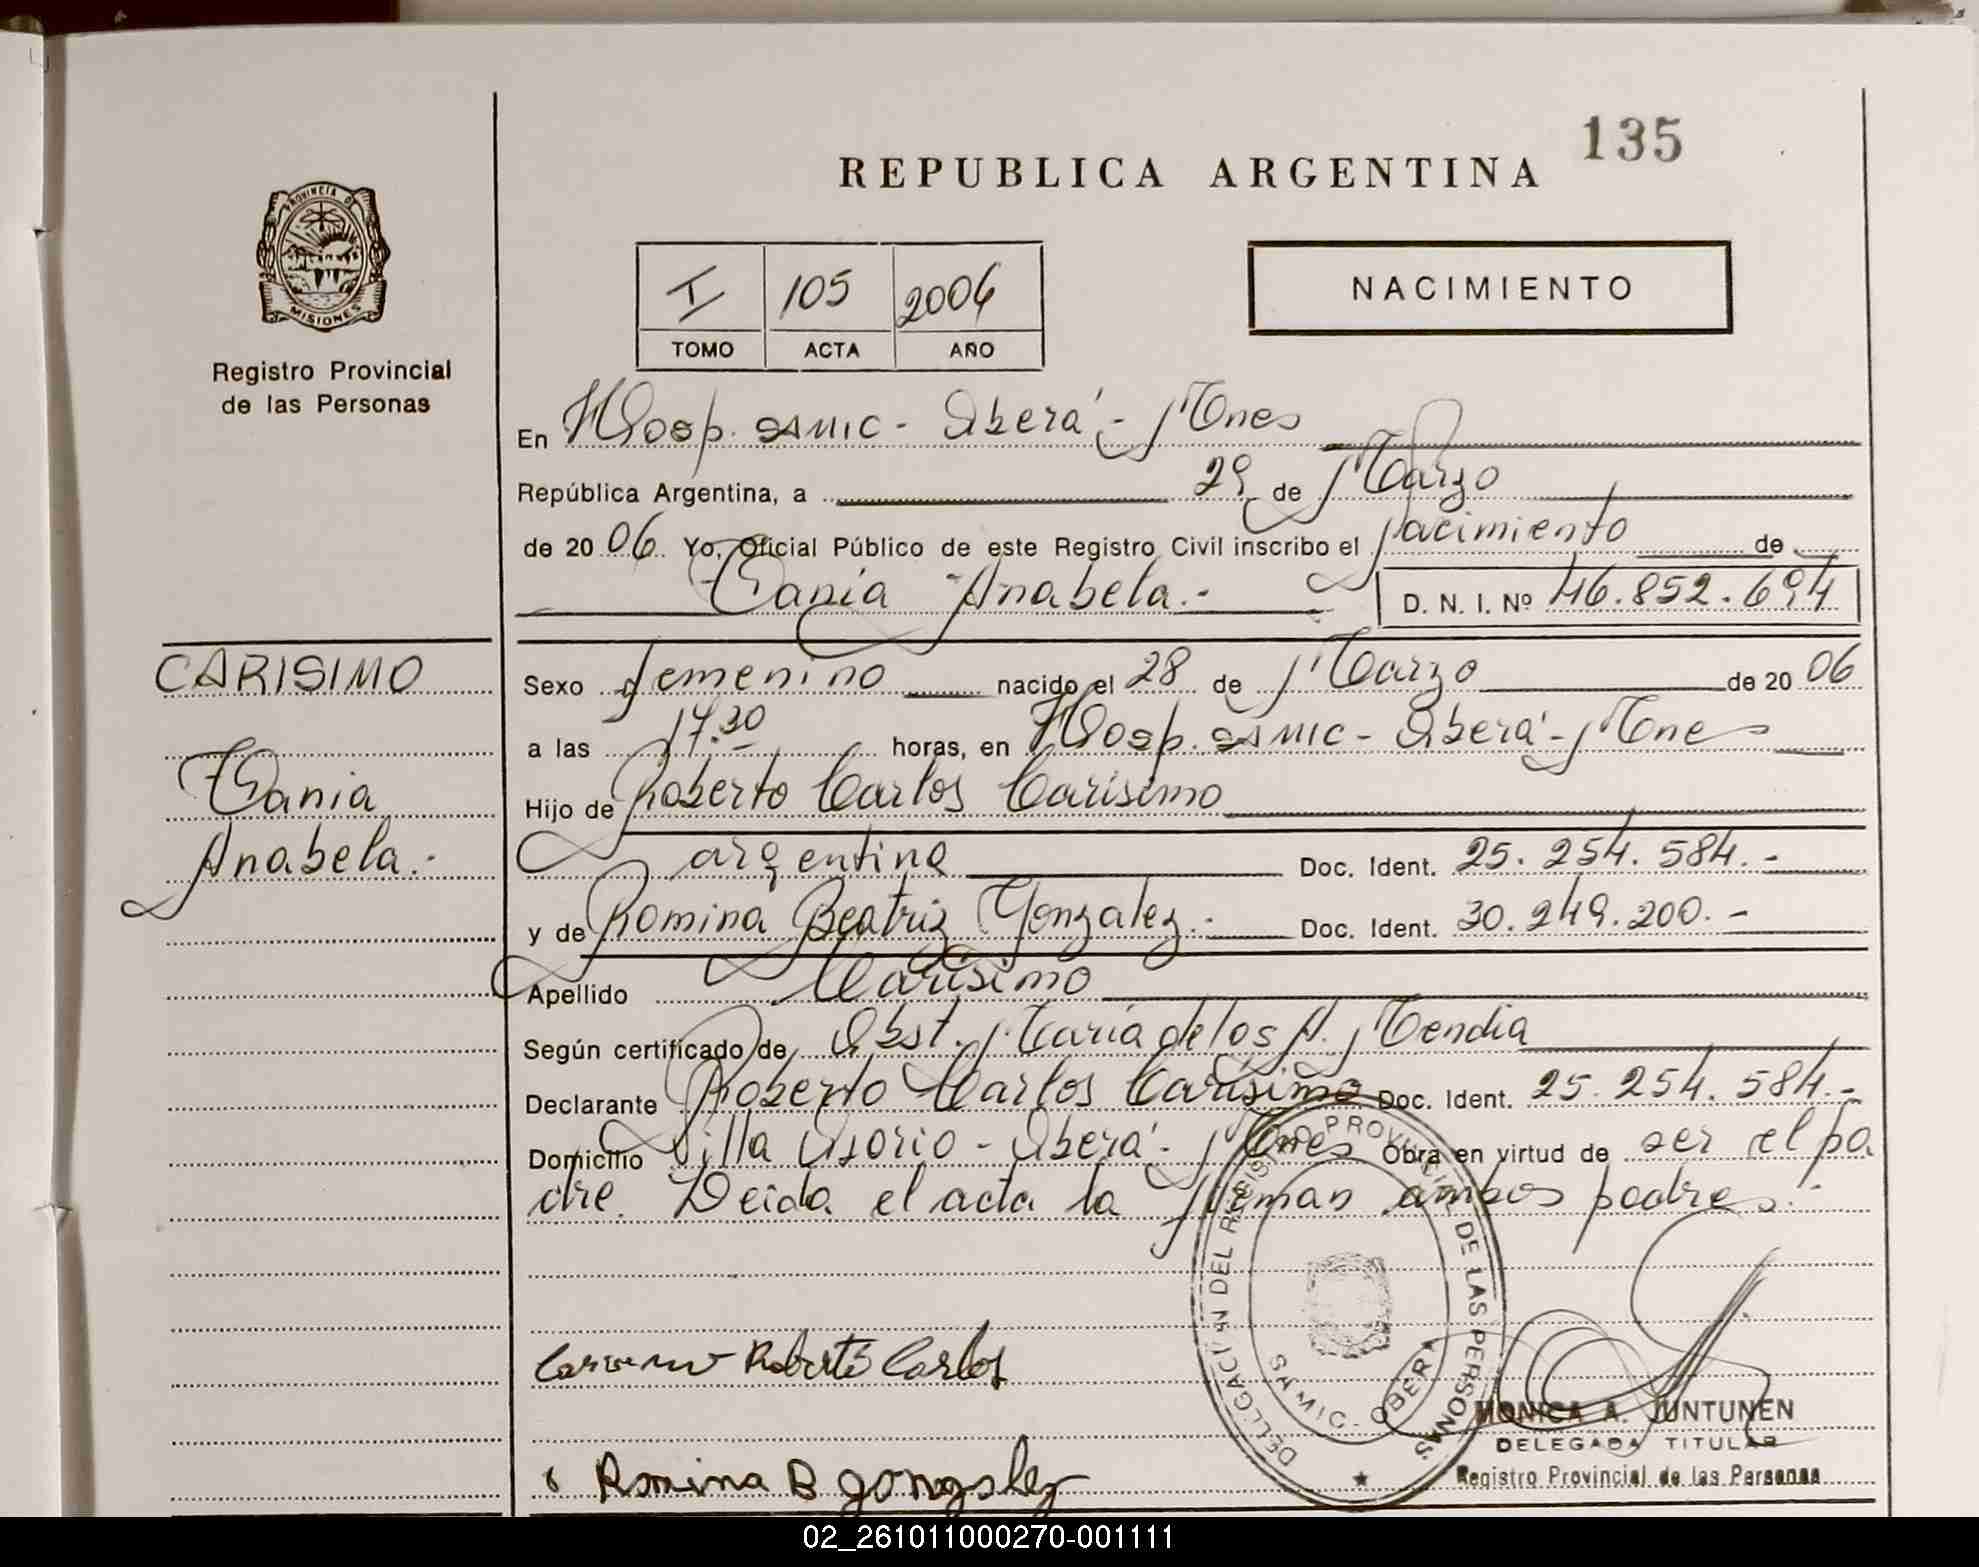 135
REPUBLICA ARGENTINA
PROVINCIA DE
MISIONES
Registro Provincial
de las Personas
I 105 2006
TOMO ACTA AÑO
NACIMIENTO
En Hosp. SAMIC - Oberá - Mnes
República Argentina, a 29 de Marzo
de 2006 Yo, Oficial Público de este Registro Civil inscribo el nacimiento de
Tania Anabela.- D. N. I. Nº 46.852.694
CARISIMO
Tania
Anabela.-
Sexo femenino nacido el 28 de Marzo de 2006
a las 17.30 horas, en Hosp. SAMIC - Oberá - Mnes
Hijo de Roberto Carlos Carisimo
argentina Doc. Ident. 25.254.584.-
y de Romina Beatriz Gonzalez.- Doc. Ident. 30.249.200.-
Apellido Carisimo
Según certificado de Obst. María de los A. Mendia
Declarante Roberto Carlos Carisimo Doc. Ident. 25.254.584.-
Domicilio Villa Osorio - Oberá - Mnes Obra en virtud de ser el pa
dre. Leida el acta la firman ambos padres.-
DELEGACION DEL REGISTRO PROVINCIAL DE LAS PERSONAS
SAMIC - OBERA
Carisimo Roberto Carlos
Romina B gonzalez
MONICA A. JUNTUNEN
DELEGADA TITULAR
Registro Provincial de las Personas
02_261011000270-001111